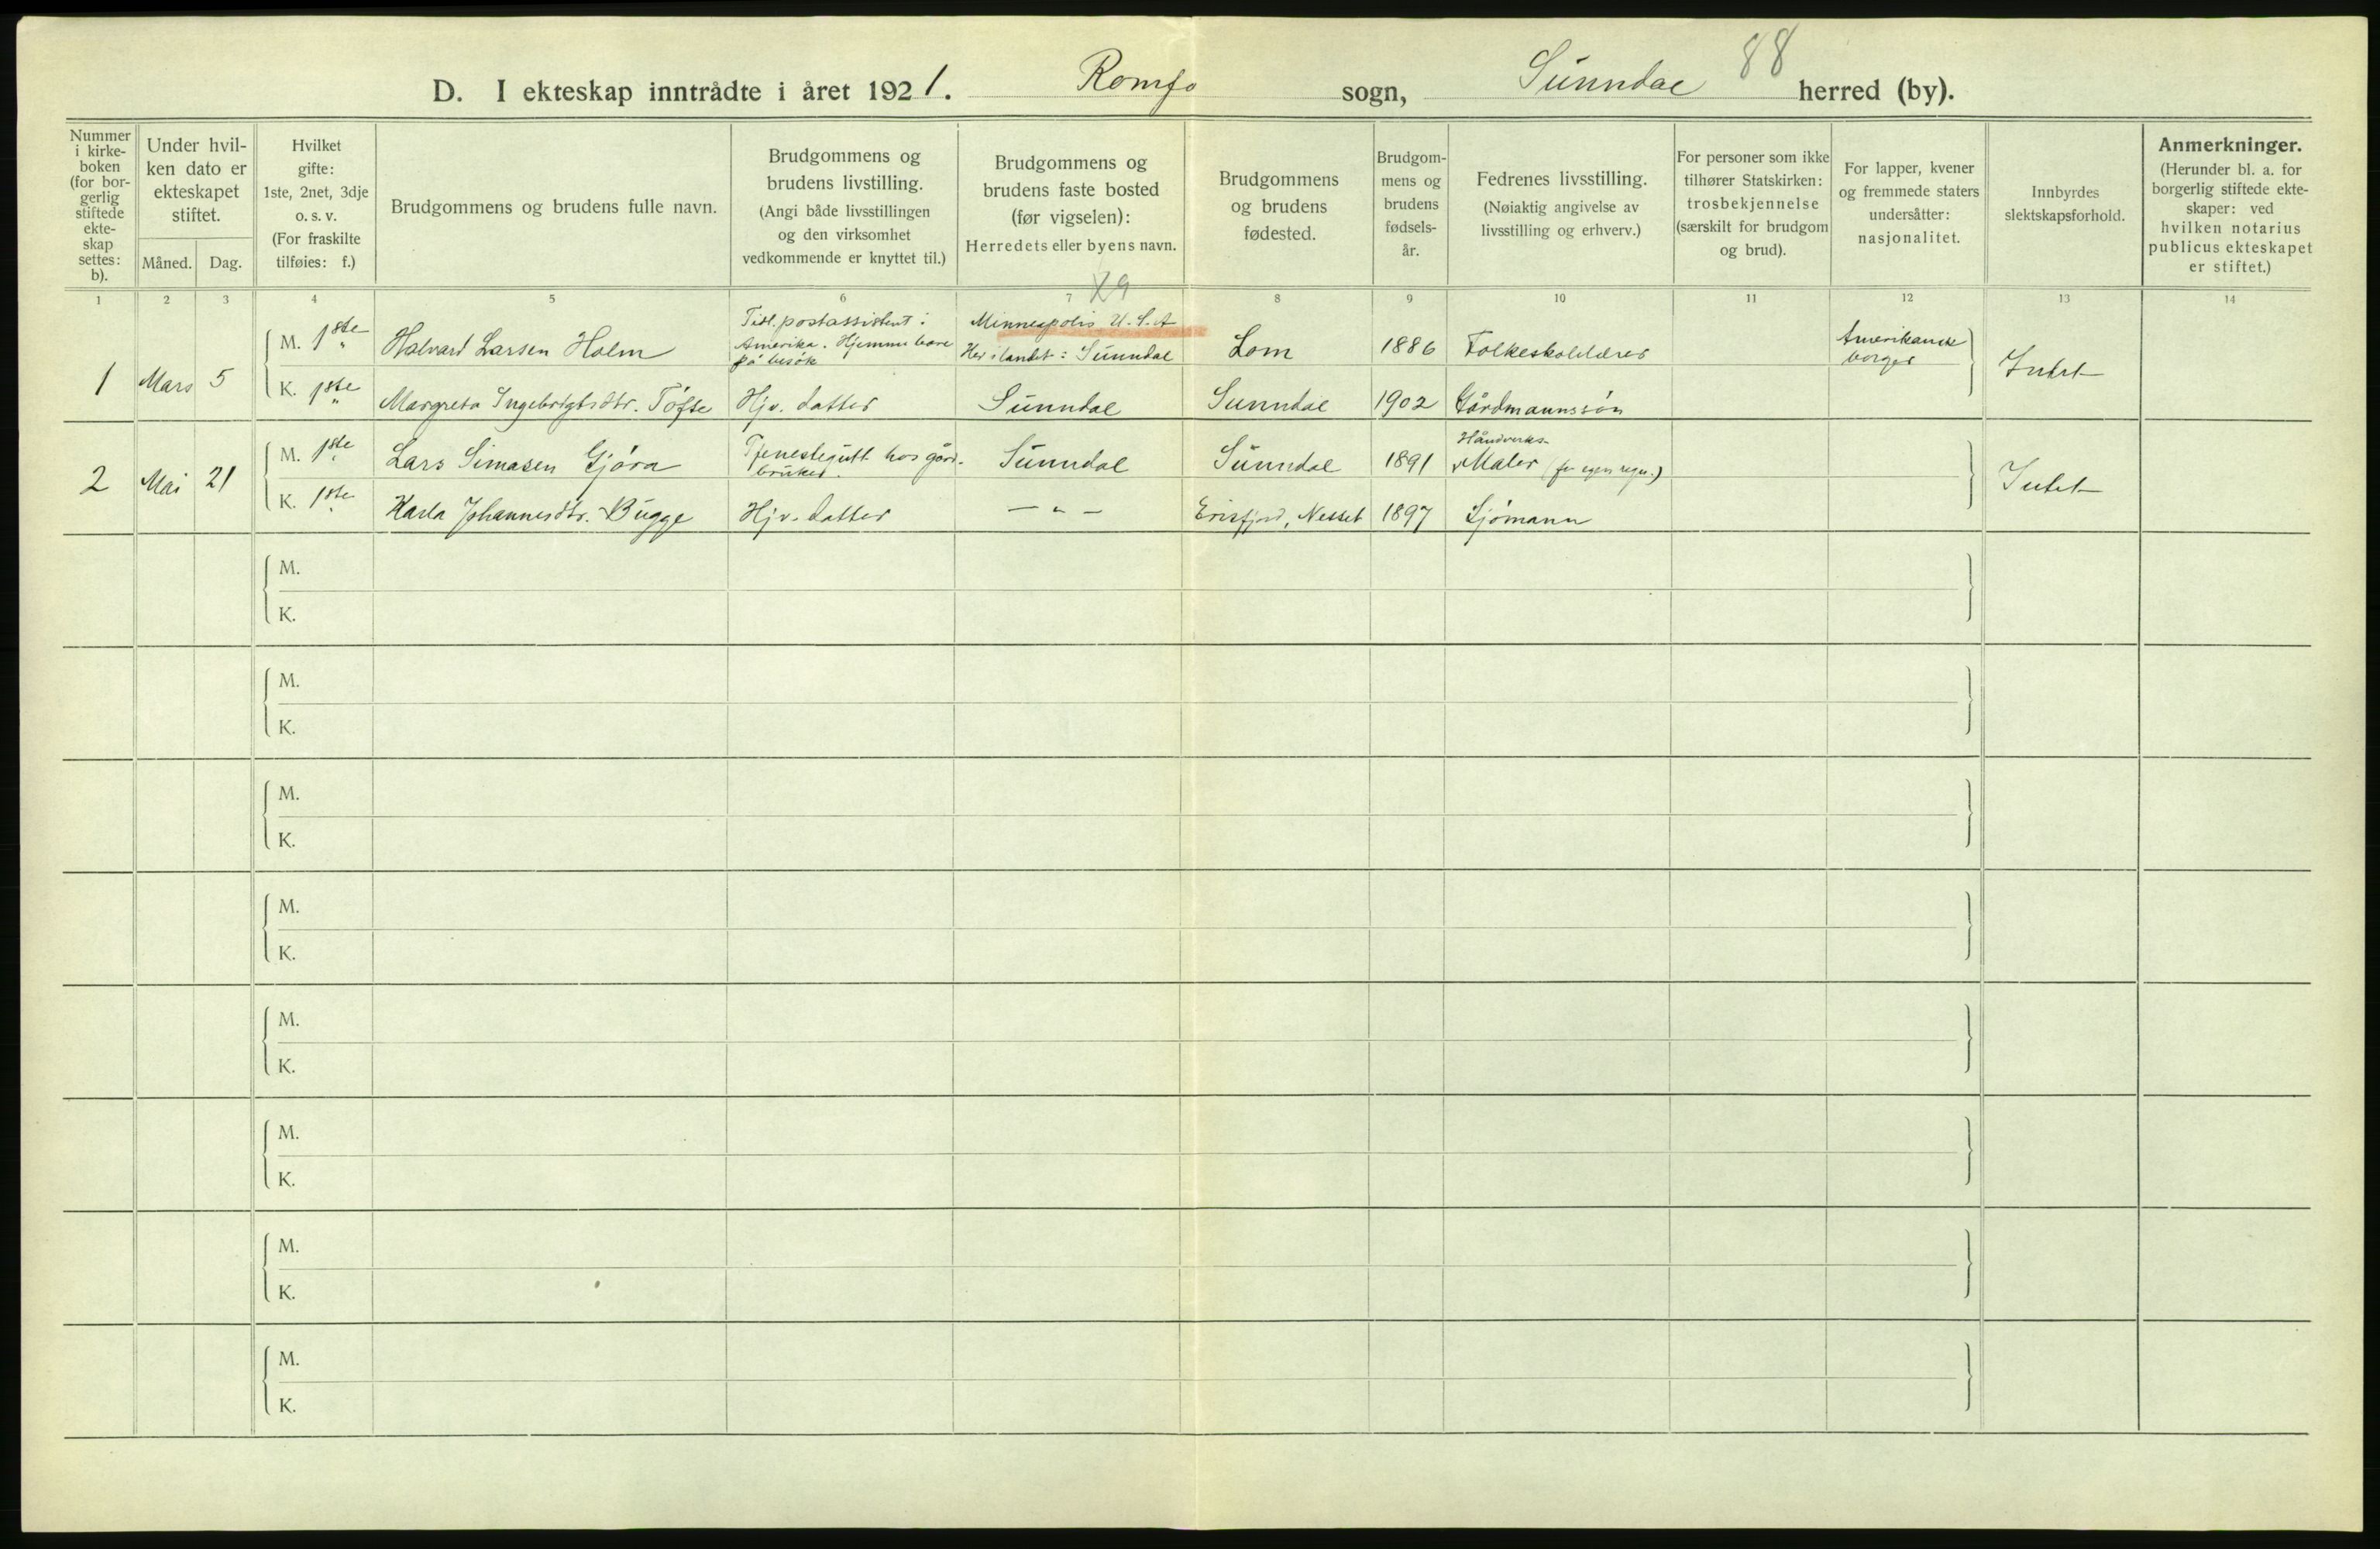 88
D. I ekteskap inntrådte i året 1921. Romfo sogn, Sunndal herred (by).
Nummer i kirke- boken (for bor- gerlig stiftede ekte- skap settes: b).
Under hvil- ken dato er ekteskapet stiftet.
Måned. Dag.
Hvilket gifte: 1ste, 2net, 3dje o. s. v. (For fraskilte tilføies: f.)
Brudgommens og brudens fulle navn.
Brudgommens og brudens livstilling. (Angi både livsstillingen og den virksomhet vedkommende er knyttet til.)
Brudgommens og brudens faste bosted (før vigselen): Herredets eller byens navn.
Brudgommens og brudens fødested.
Brudgom- mens og brudens fødsels- år.
Fedrenes livsstilling. (Nøiaktig angivelse av livsstilling og erhverv.)
For personer som ikke tilhører Statskirken: trosbekjennelse (særskilt for brudgom og brud).
For lapper, kvener og fremmede staters undersåtter: nasjonalitet.
Innbyrdes slektskapsforhold.
Anmerkninger. (Herunder bl. a. for borgerlig stiftede ekte- skaper: ved hvilken notarius publicus ekteskapet er stiftet.)
1 2 3 4 5 6 7 8 9 10 11 12 13 14
1 Mars 5
M. 1ste Halvard Larsen Holm Tidl. postassistent i Amerika. Hjemme bare på besøk Minneapolis U.S.A Her i landet: Sunndal Lom 1886 Folkeskolelærer Amerikansk borger Intet
K. 1ste Margreta Ingebrigtsdtr. Tofte Hjv. datter Sunndal Sunndal 1902 Gårdmannssøn
2 Mai 21
M. 1ste Lars Simasen Gjøra Tjenestegutt hos gård- bruker. Sunndal Sunndal 1891 Håndverks- Maler (for egen regn.) Intet
K. 1ste Karla Johannesdtr. Bugge Hjv. datter — " — Erisfjord, Nesset 1897 Sjømann
M.
K.
M.
K.
M.
K.
M.
K.
M.
K.
M.
K.
M.
K.
M.
K.